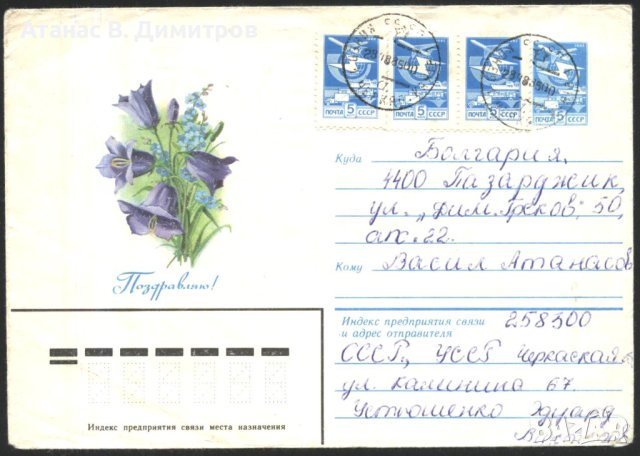 Атанас В. Димитров
ПОЧТА 5 СССР
ПОЧТА 5 СССР
ПОЧТА 5 СССР
ПОЧТА 5 СССР
Куда Болгария,
4400 Пазарджик,
ул. „Дим. Греков", 50,
ап. 22.
Кому Васил Атанасов
Поздравляю!
Индекс предприятия связи
и адрес отправителя 258300
СССР, УССР Черкаская
ул. Калинина 67
Устюшенко Эдуард
Индекс предприятия связи места назначения